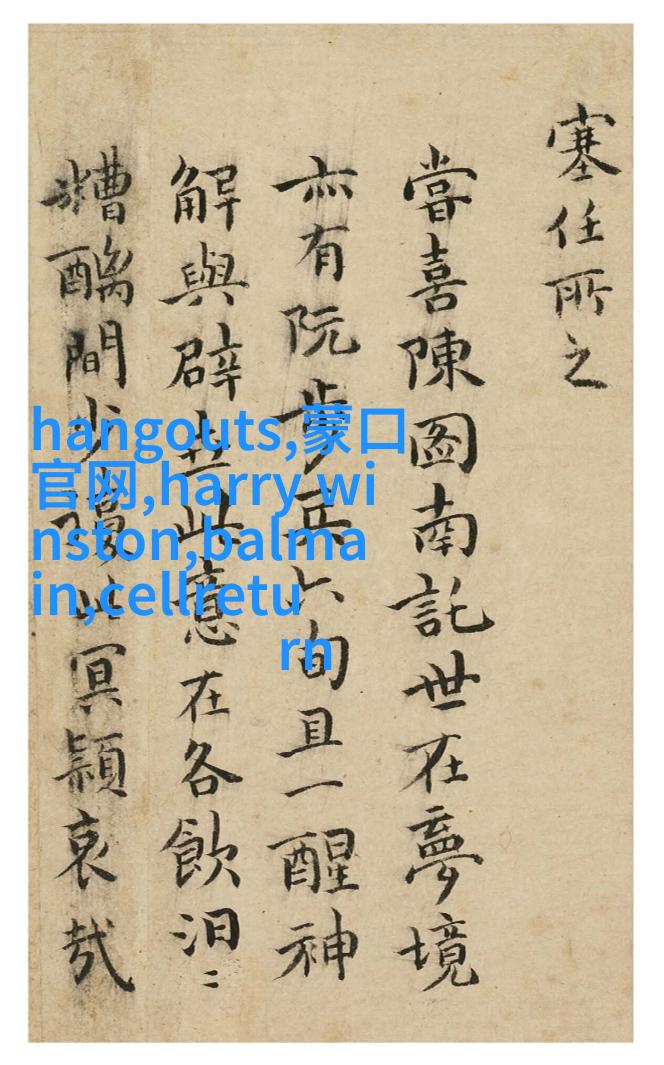 塞任所之
嘗喜陳圖南託世在夢境
亦有阮步兵六旬且一醒神
解與辟世此意在各飲汨〻
糟醨間少以冥穎哀哉
hangouts,蒙口
官网,harry wi
nston,balma
in,cellretu
rn